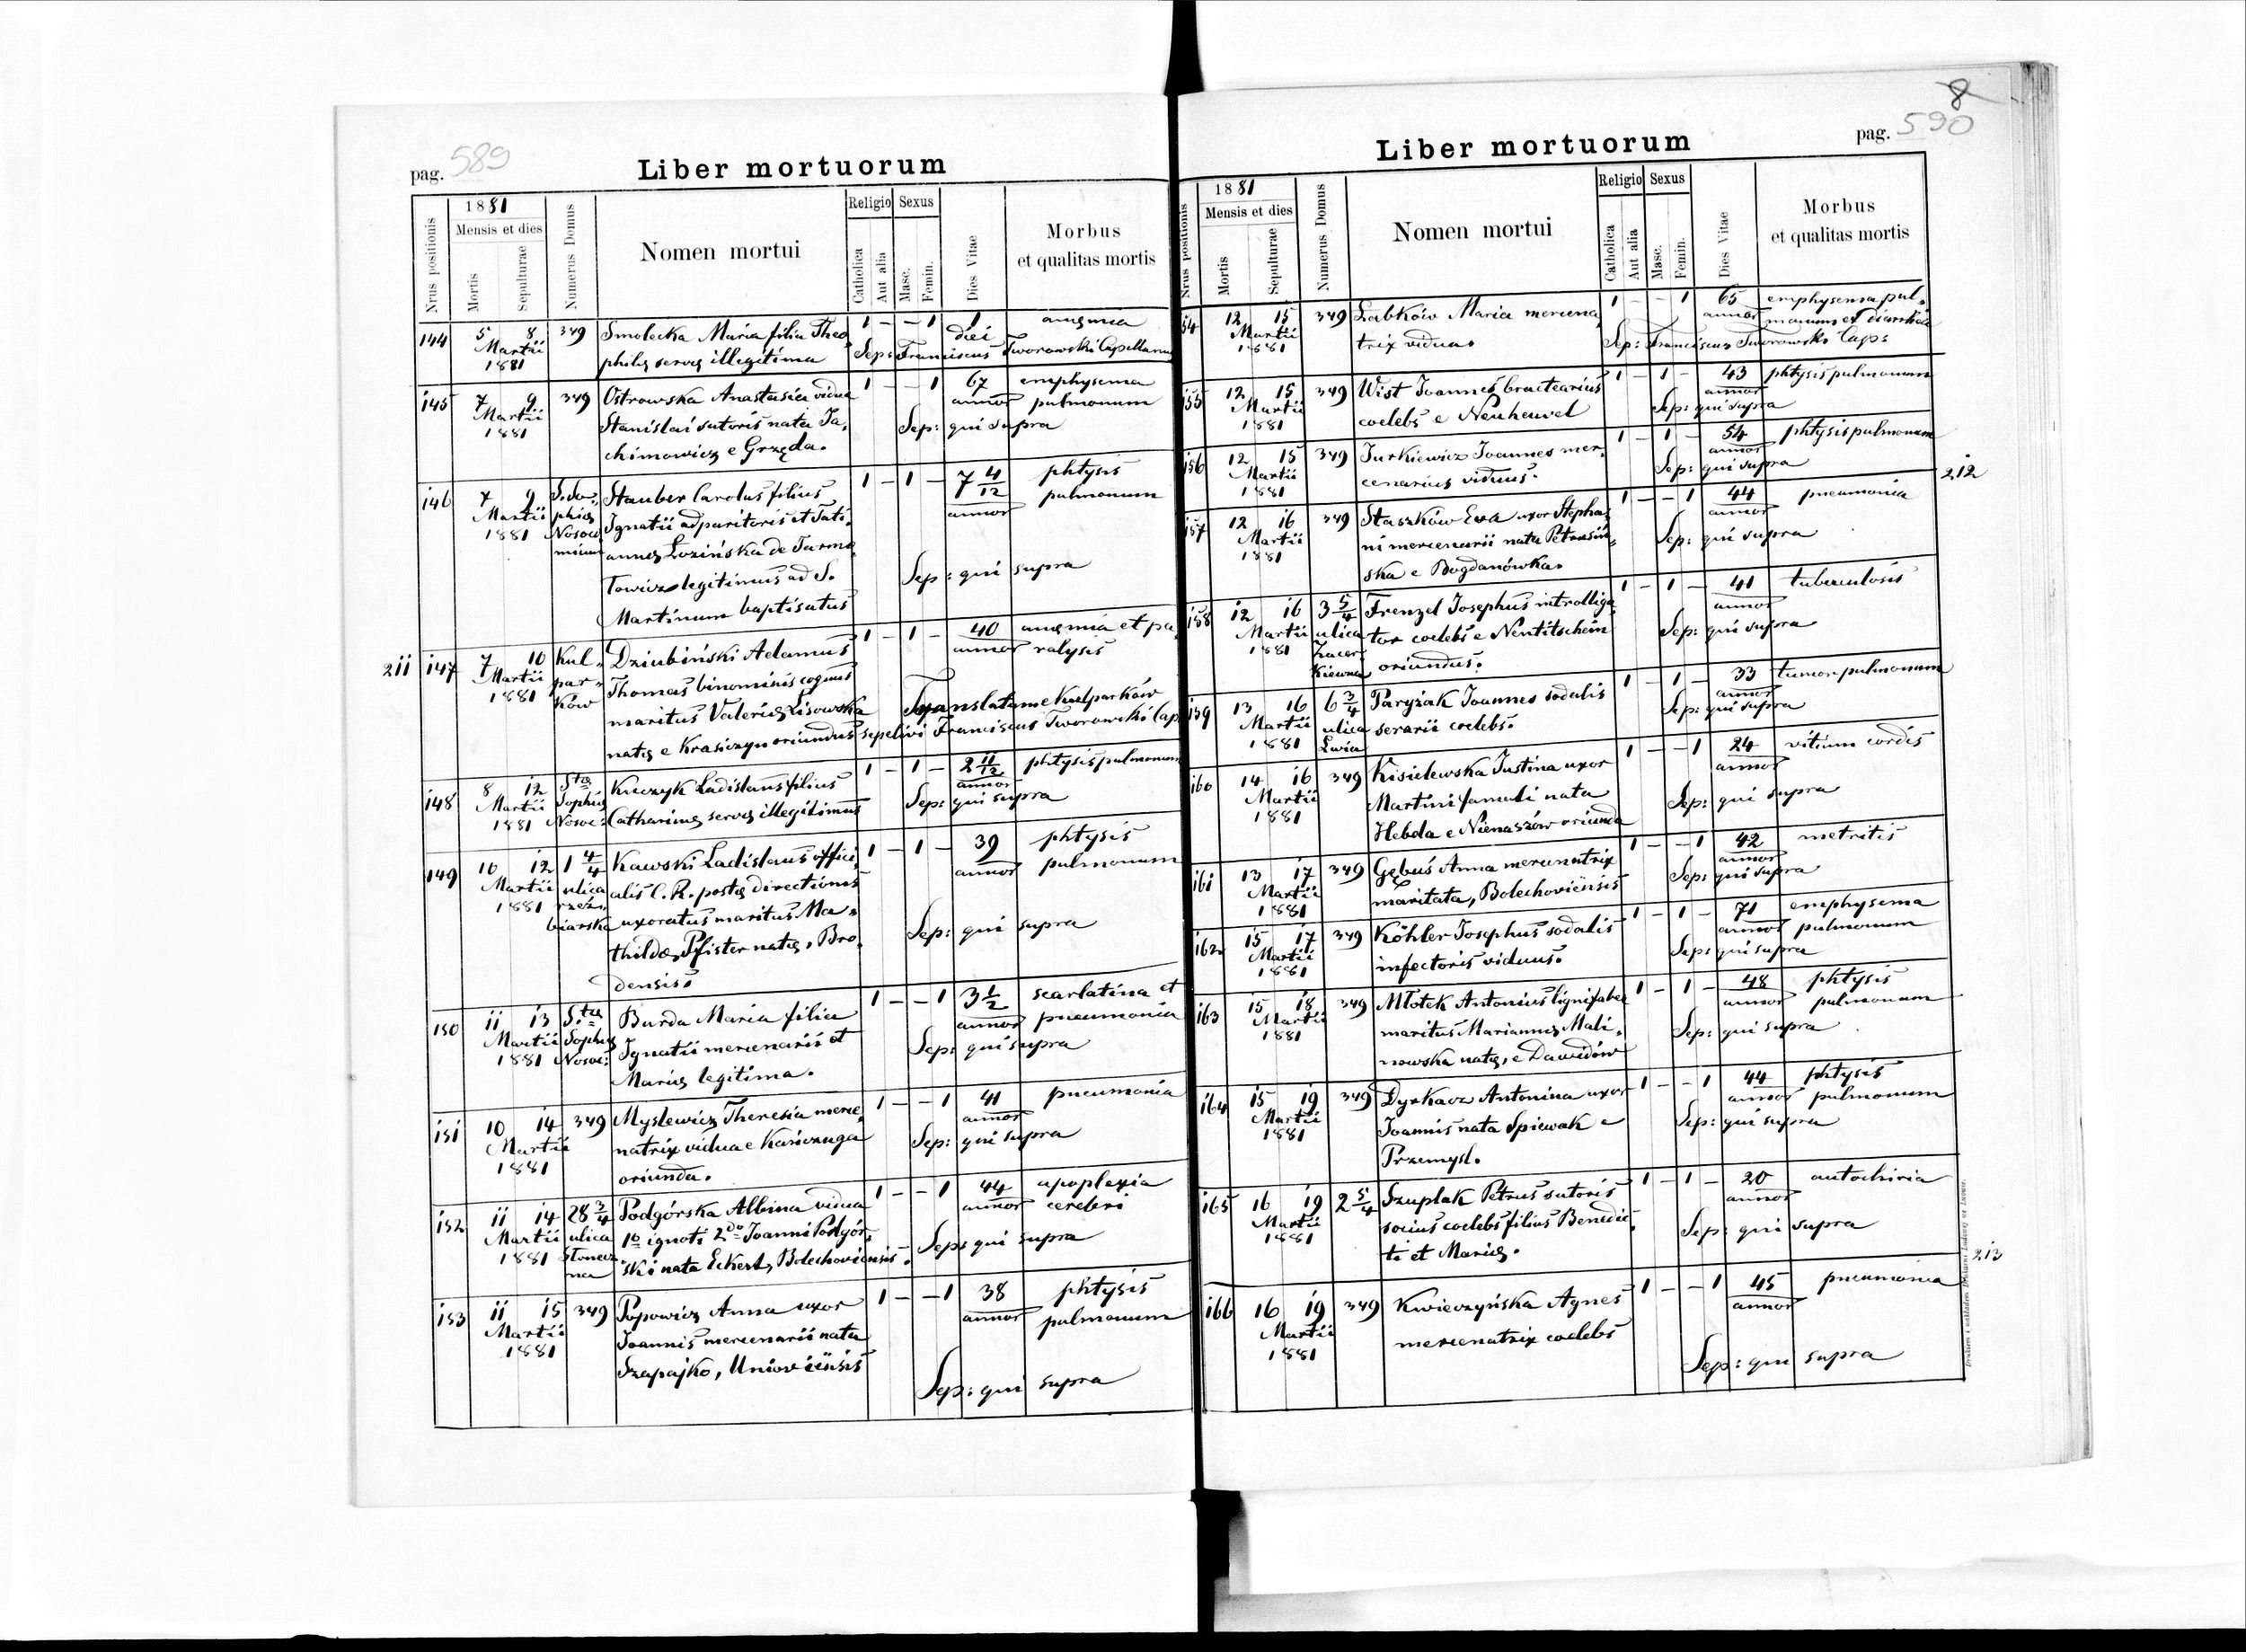 pag. 589
Liber mortuorum
Nrus positionis
1881
Mensis et dies
Mortis
Sepulturae
Numerus Domus
Nomen mortui
Religio
Catholica
Aut alia
Sexus
Masc.
Femin.
Dies Vitae
Morbus
et qualitas mortis
144 5 8 349 Smolecka Maria filia Theo, 1 - - 1 1 anęmia
Martii philę servę illegitima Sep: Franciscus diei Tworowski Capellanus
1881
145 7 9 349 Ostrowska Anastasia vidua 1 - - 1 67 emphysema
Martii Stanislai sutoris nata Ja, annor pulmonum
1881 chimowicz e Grzęda. Sep: qui supra
146 7 9 S. So, Stauber Carolus filius 1 - 1 - 7 4/12 phtysis
Martii phię Ignatii adparitoris et Tati, annor pulmonum
1881 Nosoco, annę Łozińska de Jarmo,
mium łowicz legitimus ad S. Sep: qui supra
Martinum baptisatus
211 147 7 10 Kul, Dziubiński Adamus 1 - 1 - 40 anęmia et pa,
Martii par, Thomas binominis cognus annor ralysis
1881 ków maritus Valerię Lisowska Translatum e Kulparków
natę e Krasiczyn oriundus sepelivi Franciscus Tworowski Cap
148 8 12 Stę Kuczyk Ladislaus filius 1 - 1 - 2 11/12 phtysis pulmonum
Martii Sophię Catharinę servę illegitimus annor
1881 Nosoc: Sep: qui supra
149 10 12 1 4/4 Kawski Ladislaus offici, 1 - 1 - 39 phtysis
Martii ulica alis C. R. postę directionis annor pulmonum
1881 rzeź, uxoratus maritus Ma,
biarska thildę Pfister natę, Bro, Sep: qui supra
densis.
150 11 13 S.tę Burda Maria filia 1 - - 1 3 1/2 scarlatina et
Martii Sophię Ignatii mercenarii et annor pneumonia
1881 Nosoc: Marię legitima. Sep: qui supra
151 10 14 349 Myslewicz Theresia merce, 1 - - 1 41 pneumonia
Martii natrix vidua e Kańczuga annor
1881 oriunda. Sep: qui supra
152 11 14 28 3/4 Podgórska Albina vidua 1 - - 1 44 apoplexia
Martii ulica 1o ignoti 2do Joanni Podgór, annor cerebri
1881 Słonecz, ski nata Eckert, Bolechoviensis. Sep: qui supra
na
153 11 15 349 Popowicz Anna uxor 1 - - 1 38 phtysis
Martii Joannis mercenarii nata annor pulmonum
1881 Szapajko, Sep: qui supra
8
pag. 590
Liber mortuorum
Nrus positionis
1881
Mensis et dies
Mortis
Sepulturae
Numerus Domus
Nomen mortui
Religio
Catholica
Aut alia
Sexus
Masc.
Femin.
Dies Vitae
Morbus
et qualitas mortis
54 12 15 349 Łabków Maria mercena, 1 - - 1 65 emphysema pul,
Martii trix vidua. annor monum et diarrhea
1881 Sep: Franciscus Tworowski Cap:
155 12 15 349 Wist Joannes bractearius 1 - 1 - 43 phtysis pulmonum
Martii coelebs e Neuheuvel annor
1881 Sep: qui supra
156 12 15 349 Jurkiewicz Joannes mer, 1 - 1 - 54 phtysis pulmonum
Martii cenarius viduus. annor
1881 Sep: qui supra 212
157 12 16 349 Staszków Eva uxor Stepha, 1 - - 1 44 pneumonia
Martii ni mercenarii nata Petrasiń, annor
1881 ska e Bogdanówka. Sep: qui supra
158 12 16 3 5/4 Frenzel Josephus introlliga, 1 - 1 - 41 tuberculosis
Martii ulica tor coelebs e Nentitschein annor
1881 oriundus. Sep: qui supra
159 13 16 6 3/4 Paryżak Joannes sodalis 1 - 1 - 33 tumor pulmonum
Martii ulica serarii coelebs. annor
1881 Lwia Sep: qui supra
160 14 16 349 Kisielewska Justina uxor 1 - - 1 24 vitium cordis
Martii Martini famuli nata annor
1881 Hebda e Nienaszów oriunda Sep: qui supra
161 13 17 349 Gębuś Anna mercenatrix 1 - - 1 42 metritis
Martii maritata, Bolechoviensis annor
1881 Sep: qui supra
162 15 17 349 Köhler Josephus sodalis 1 - 1 - 71 emphysema
Martii infectoris viduus. annor pulmonum
1881 Sep: qui supra
163 15 18 349 Młotek Antonius lignifaber 1 - 1 - 48 phtysis
Martii maritus Mariannę Mali, annor pulmonum
1881 nowska natę, e Dawidów Sep: qui supra
164 15 19 349 Dyrkacz Antonina uxor 1 - - 1 44 phtysis
Martii Joannis nata Spiewak e annor pulmonum
1881 Przemysl. Sep: qui supra
165 16 19 2 5/4 Szuplak Petrus sutoris 1 - 1 - 20 autochiria
Martii socius coelebs filius Benedic, annor
1881 ti et Marię. Sep: qui supra
213
166 16 19 349 Kwieczyńska Agnes 1 - - 1 45 pneumonia
Martii mercenatrix coelebs annor
1881 Sep: qui supra